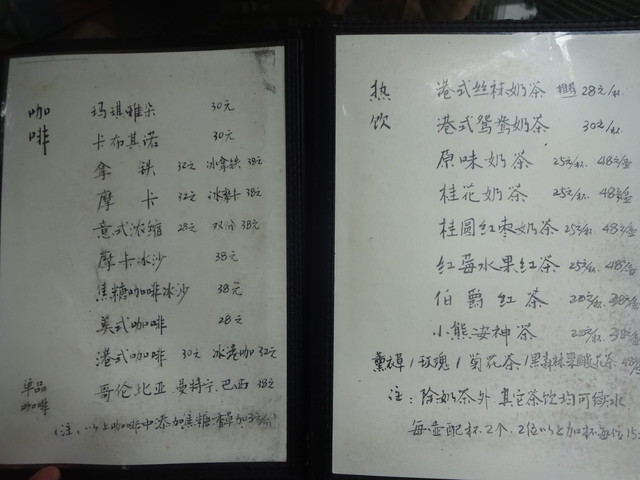 咖啡
玛琪雅朵 30元
卡布其诺 30元
拿铁 32元 冰拿铁 38元
摩卡 32元 冰摩卡 38元
意式浓缩 28元 双份 38元
摩卡冰沙 38元
焦糖咖啡冰沙 38元
美式咖啡 28元
港式咖啡 30元 冰港咖 32元
单品咖啡 哥伦比亚 曼特宁 巴西 38元
(注：以上咖啡中添加焦糖
热饮
港式丝袜奶茶 28元/杯
港式鸳鸯奶茶 30元/杯
原味奶茶 25元/杯 48元/壶
桂花奶茶 25元/杯 48元/壶
桂圆红枣奶茶 25元/杯 48元/壶
红莓水果红茶 25元/杯 48元/壶
伯爵红茶 20元/杯 38元/壶
小熊安神茶 20元/杯 38元/壶
薰衣草/玫瑰/菊花茶/黑森林果
注：除奶茶外 其它茶饮均可续水
每壶配杯2个，2位以上加杯每位15